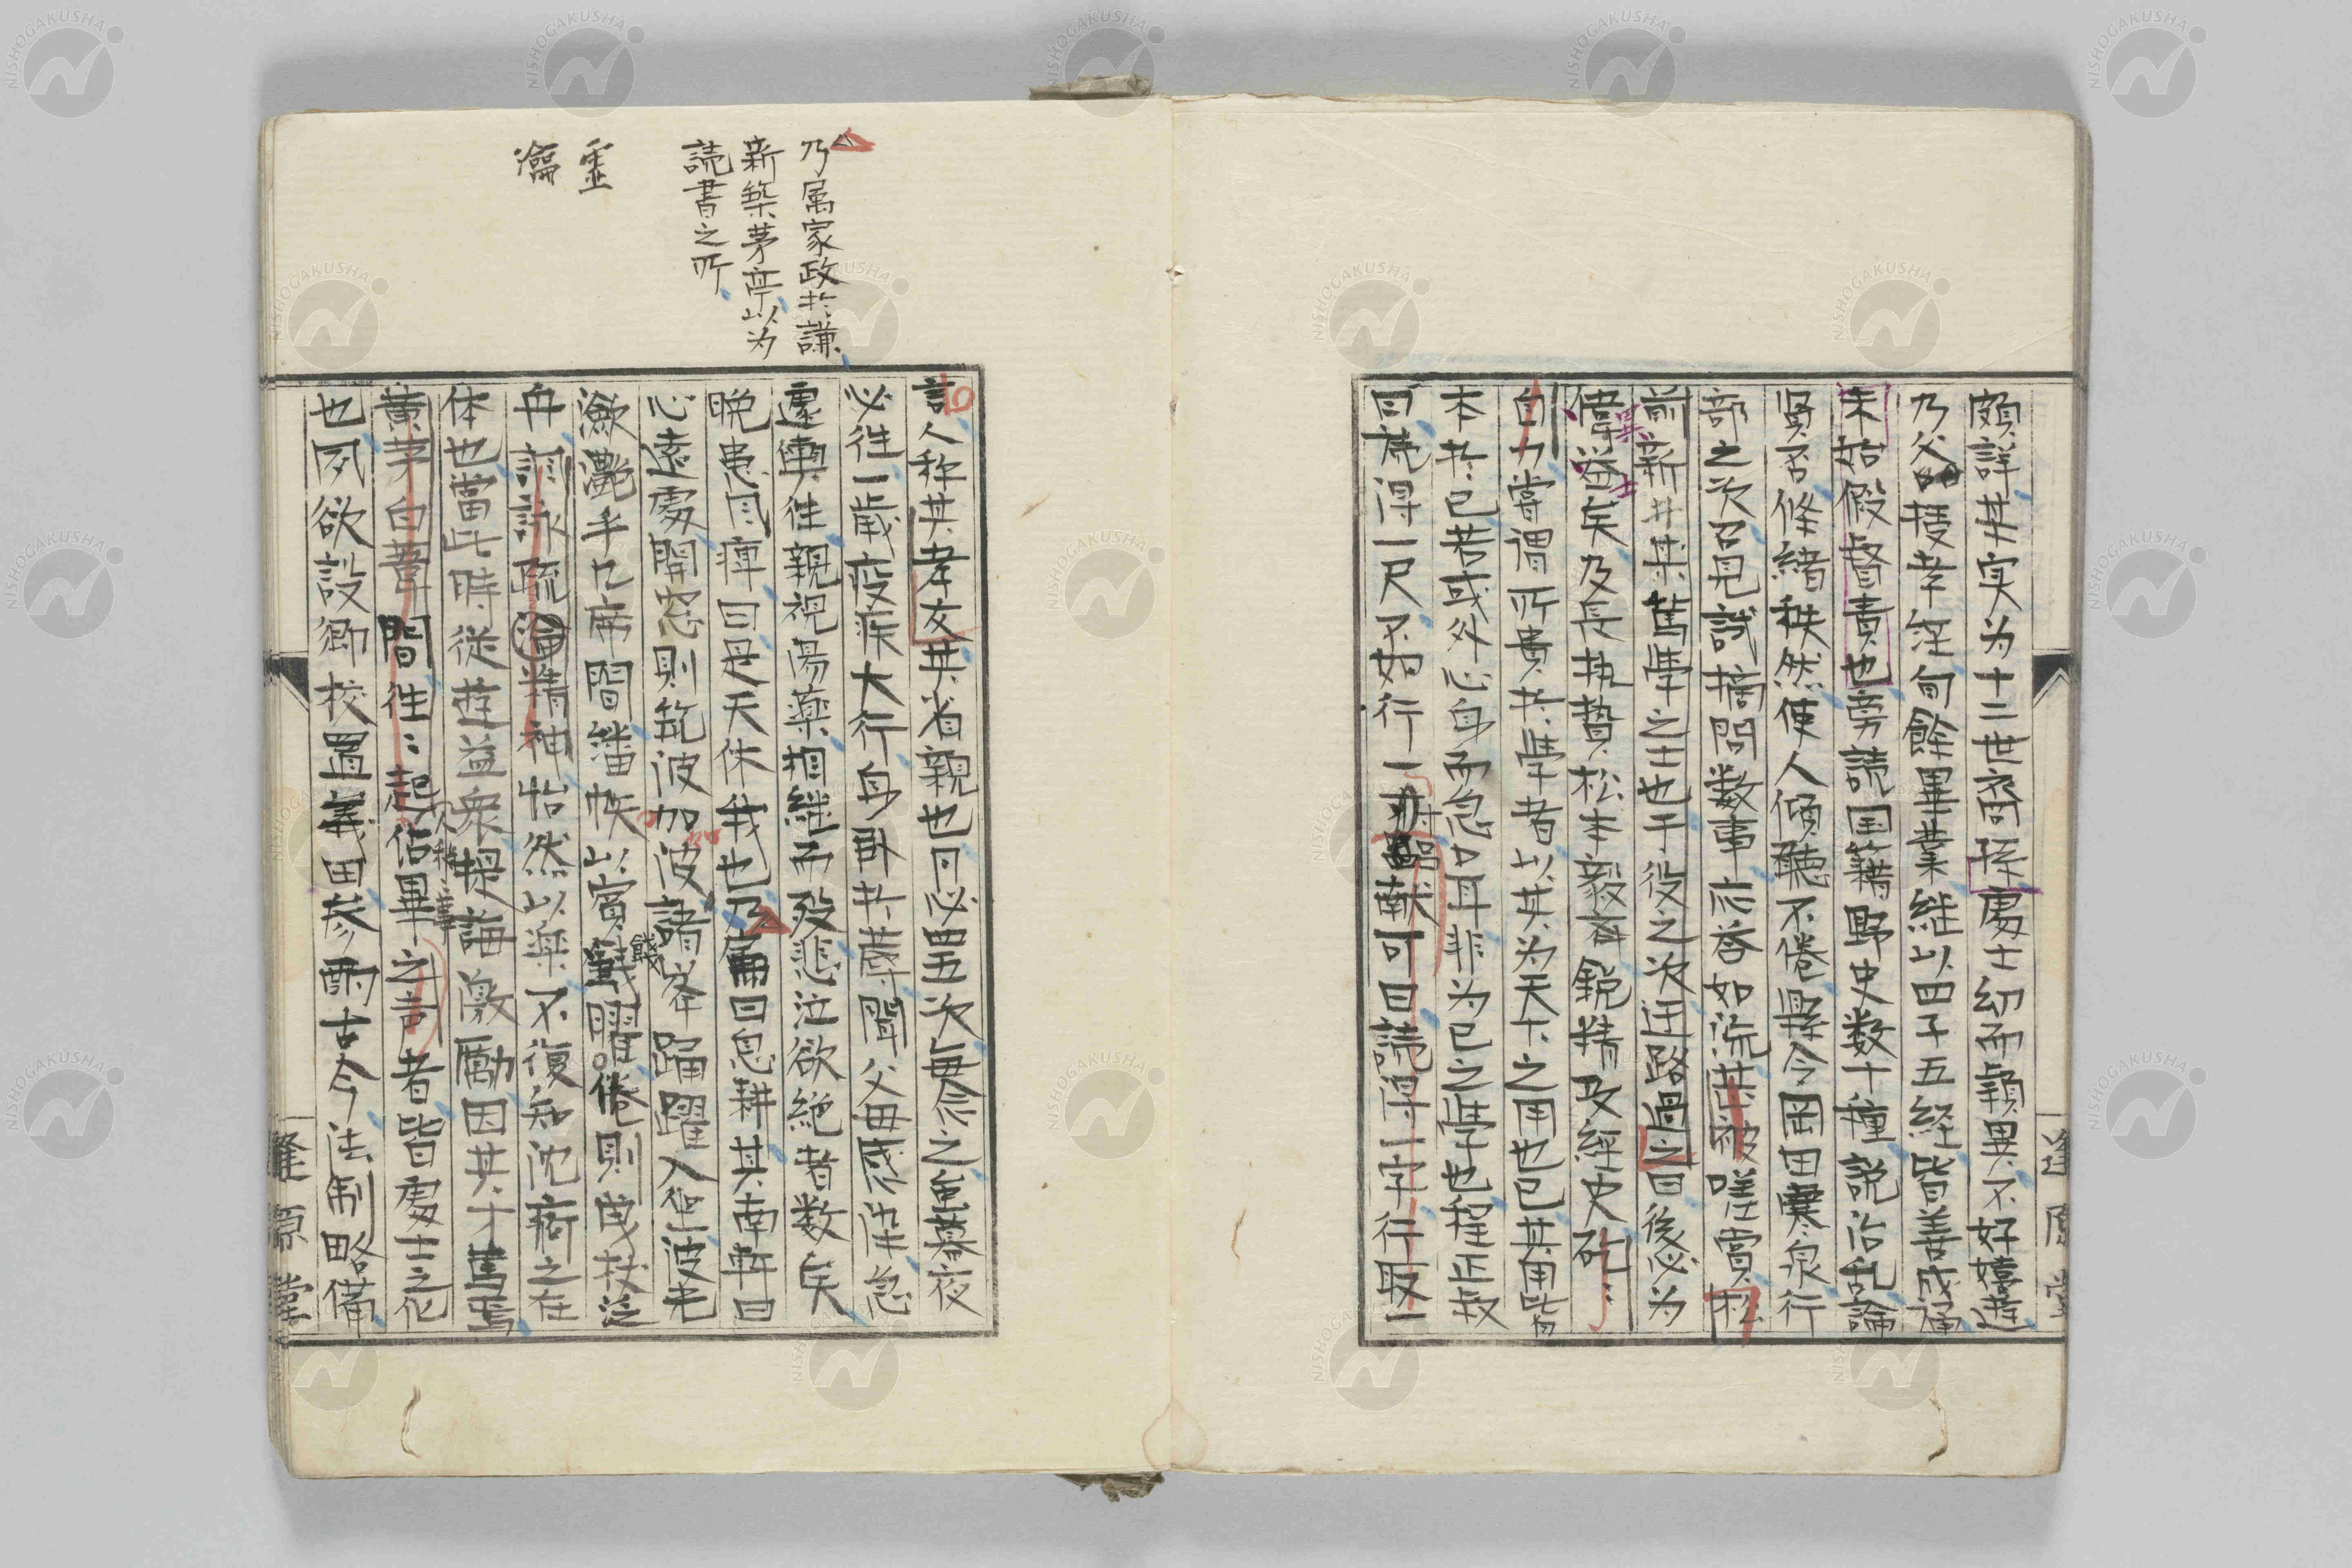 頗詳其実为十二世裔孫處士幼而穎異不好嬉遊
乃父授孝経旬餘畢業継以四子五経皆善成誦
未始假督責也旁読国籍野史数十種説治乱論
賢否條緒秩然使人傾聽不倦縣令岡田寒泉行
部之次召見試摘問数事応答如流其被嗟賞松
前新井某篤学之士也于役之次迂路過之曰後必为
偉器矣及長執贄松本毅斎鋭精攻經史矻〻
自力嘗謂所貴於学者以其为天下之用也已其用皆
本於己若或外心身而急口耳非为己之学也程正叔
曰説得一尺不如行一寸臨献可曰読得一字行取一
言人称其孝友其省親也月必四五次無念之無暮夜
必往一歳疫疾大行母卧於蓐聞父母感染急
還輿往親視湯薬相継而殁悲泣欲絶者数矣
晩患風痺曰是天休我也乃属曰息耕其南軒曰
心遠處開窓則筑波加波諸峯踊躍入望波光
瀲灩乎几席間繙帙以賓餞曜靈倦則曳杖泛
舟詞詠疏瀹精神怡然以楽不復知沈痾之在
体也當此時従遊益衆提誨激勵因其才篤焉
黄茅白葦間往〻起佔畢之声者皆處士之化
也夙欲設郷校置義田参酌古今法制略備
乃属家政於謙
新築茅亭以为
読書之所
靈
瀹
逢原堂
逢原堂
NISHOGAKUSHA